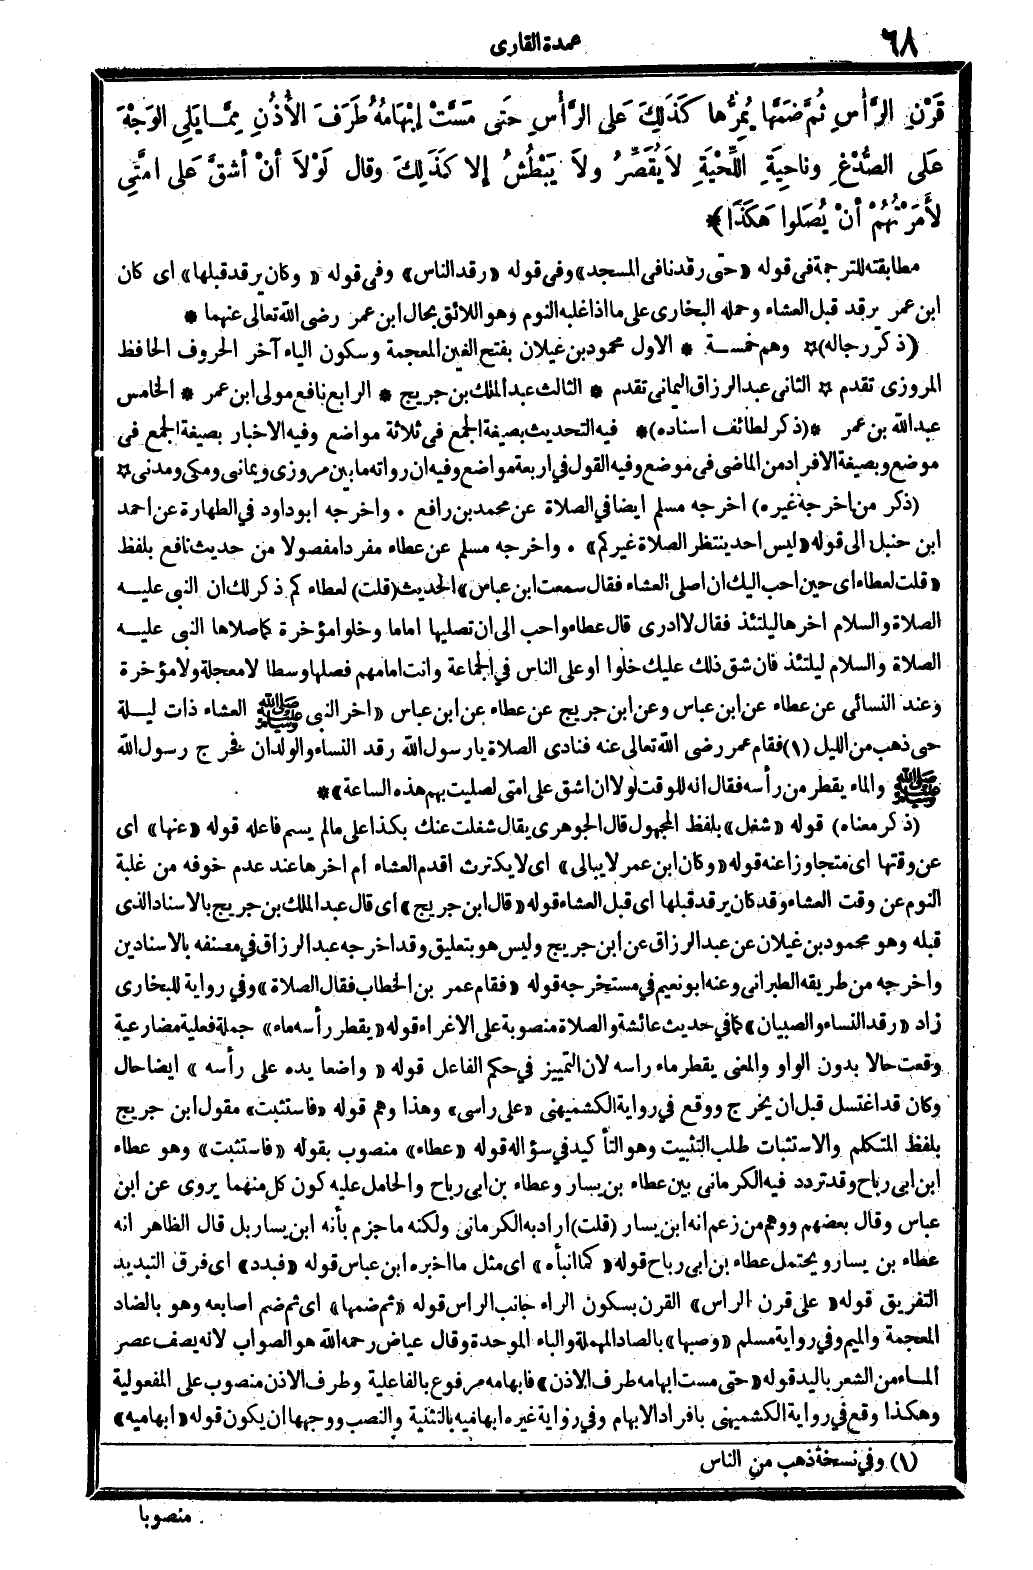 ٦٨
عمدة القارى
قَرْنِ الرَّأسِ ثُمَّ ضَمَّهَا يُمِرُّها كَذَلِكَ عَلى الرَّأسِ حَتَى مَسَّتْ إبْهَامُهُ طَرَفَ الأُذُنِ مِمَّا يَلِي الوَجْهَ
عَلَى الصُّدْغِ وناحِيَةِ اللِّحْيَةِ لاَ يُقَصِّرُ ولاَ يَبْطُشُ إلا كَذَلِكَ وقال لَوْلاَ أنْ أشقَّ عَلى امتَّي
لأَمَرْتُهُمْ أنْ يُصَلوا هَكَذَا)*
مطابقته للترجمة فى قوله «حتى رقدنا فى المسجد» وفى قوله «رقد الناس» وفى قوله «وكان يرقد قبلها» اى كان
ابن عمر يرقد قبل العشاء وحمله البخارى على ما اذا غلبه النوم وهو اللائق بحال ابن عمر رضى الله تعالى عنهما *
(ذكر رجاله)* وهم خمسة * الاول محمود بن غيلان بفتح الغين المعجمة وسكون الياء آخر الحروف الحافظ
المروزى تقدم * الثانى عبد الرزاق اليمانى تقدم * الثالث عبد الملك بن جريج * الرابع نافع مولى ابن عمر * الخامس
عبد الله بن عمر *(ذكر لطائف اسناده)* فيه التحديث بصيغة الجمع فى ثلاثة مواضع وفيه الاخبار بصيغة الجمع فى
موضع وبصيغة الافراد من الماضى فى موضع وفيه القول فى اربعة مواضع وفيه ان رواته ما بين مروزى ويمانى ومكى ومدنى *
(ذكر من اخرجه غيره) اخرجه مسلم ايضا فى الصلاة عن محمد بن رافع . واخرجه ابو داود في الطهارة عن احمد
ابن حنبل الى قوله «ليس احد ينتظر الصلاة غيركم» . واخرجه مسلم عن عطاء مفردا مفصولا من حديث نافع بلفظ
«قلت لعطاء اى حين احب اليك ان اصلى العشاء فقال سمعت ابن عباس» الحديث (قلت) لعطاء كم ذكر لك ان النبى عليه
الصلاة والسلام اخرها ليلتئذ فقال لا ادرى قال عطاء واحب الى ان تصليها اماما وخلوا مؤخرة كما صلاها النبى عليه
الصلاة والسلام ليلتئذ فان شق ذلك عليك خلوا او على الناس في الجماعة وانت امامهم فصلها وسطا لا معجلة ولا مؤخرة
وعند النسائى عن عطاء عن ابن عباس وعن ابن جريج عن عطاء عن ابن عباس «اخر النبى ﷺ العشاء ذات ليلة
حتى ذهب من الليل (١) فقام عمر رضى الله تعالى عنه فنادى الصلاة يا رسول الله رقد النساء والولدان فخرج رسول الله
ﷺ والماء يقطر من رأسه فقال انه للوقت لولا ان اشق على امتى لصليت بهم هذه الساعة»*
(ذكر معناه) قوله «شغل» بلفظ المجهول قال الجوهرى يقال شغلت عنك بكذا على مالم يسم فاعله قوله «عنها» اى
عن وقتها اى متجاوزا عنه قوله «وكان ابن عمر لا يبالى» اى لا يكترث اقدم العشاء ام اخرها عند عدم خوفه من غلبة
النوم عن وقت العشاء وقد كان يرقد قبلها اى قبل العشاء قوله «قال ابن جريج» اى قال عبد الملك بن جريج بالاسناد الذى
قبله وهو محمود بن غيلان عن عبد الرزاق عن ابن جريج وليس هو بتعليق وقد اخرجه عبد الرزاق في مصنفه بالاسنادين
واخرجه من طريقه الطبرانى وعنه ابو نعيم في مستخرجه قوله «فقام عمر بن الخطاب فقال الصلاة» وفي رواية للبخارى
زاد «رقد النساء والصبيان» كما في حديث عائشة والصلاة منصوبة على الاغراء قوله «يقطر رأسه ماء» جملة فعلية مضارعية
وقعت حالا بدون الواو والمعنى يقطر ماء راسه لان التمييز في حكم الفاعل قوله «واضعا يده على رأسه» ايضا حال
وكان قد اغتسل قبل ان يخرج ووقع في رواية الكشميهنى «على راسى» وهذا وهم قوله «فاستثبت» مقول ابن جريج
بلفظ المتكلم والاستثبات طلب التثبيت وهو التأكيد في سؤاله قوله «عطاء» منصوب بقوله «فاستثبت» وهو عطاء
ابن ابى رباح وقد تردد فيه الكرمانى بين عطاء بن يسار وعطاء بن ابى رباح والحامل عليه كون كل منهما يروى عن ابن
عباس وقال بعضهم ووهم من زعم انه ابن يسار (قلت) اراد به الكرمانى ولكنه ما جزم بأنه ابن يسار بل قال الظاهر انه
عطاء بن يسار ويحتمل عطاء بن ابى رباح قوله «كما انبأه» اى مثل ما اخبره ابن عباس قوله «فبدد» اى فرق التبديد
التفريق قوله «على قرن الراس» القرن بسكون الراء جانب الراس قوله «ثم ضمها» اى ثم ضم اصابعه وهو بالضاد
المعجمة والميم وفي رواية مسلم «وصبها» بالصاد المهملة والباء الموحدة وقال عياض رحمه الله هو الصواب لانه يصف عصر
الماء من الشعر باليد قوله «حتى مست ابهامه طرف الاذن» فابهامه مرفوع بالفاعلية وطرف الاذن منصوب على المفعولية
وهكذا وقع في رواية الكشميهنى بافراد الابهام وفي رواية غيره ابهاميه بالتثنية والنصب ووجهها ان يكون قوله «ابهاميه»
(١) وفي نسخة ذهب من الناس
منصوبا